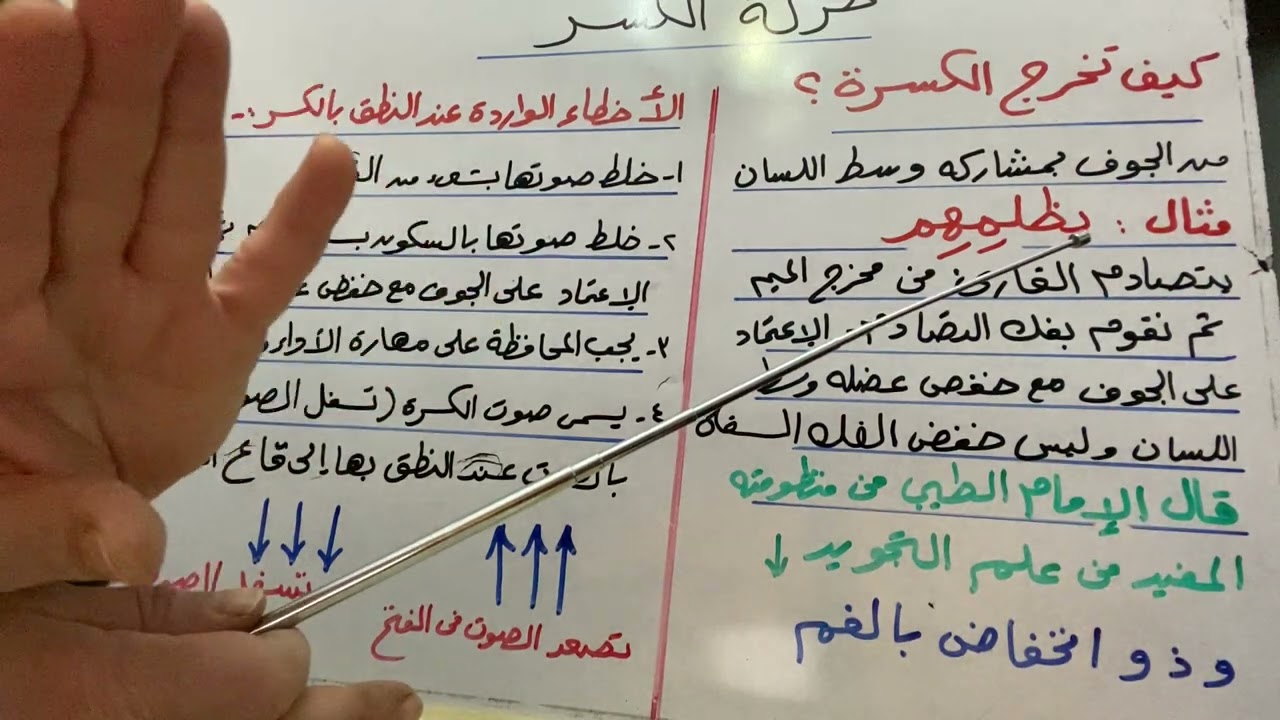 حركة الكسر
كيف تخرج الكسرة ؟
من الجوف بمشاركه وسط اللسان
مثال : يظلِمِهِم
بتصادم القارئ في مخرج الميم
ثم نقوم بفك التصادم الإعتماد
على الجوف مع خفض عضله وسط
اللسان وليس خفض الفك السفلى
قال الإمام الطيبي في منظومته
المفيد في علم التجويد ↓
وذو انخفاض بالفم
الأخطاء الواردة عند النطق بالكسر :-
١- خلط صوتها بشعء من
٢- خلط صوتها بالسكون
الإعتماد على الجوف مع خفض
٣- يجب المحافظة على مهارة الأداء
٤- يسمى صوت الكسرة (تسفل الصو
عند النطق بها إلى قاع
تسفل الصو
تصعد الصوت في الفتح